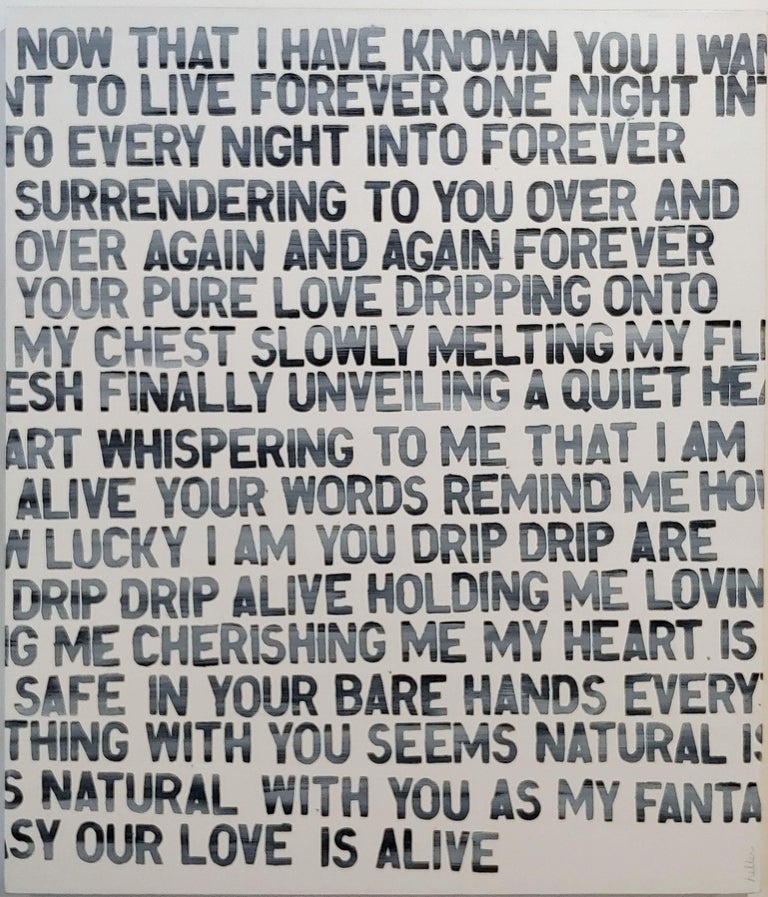 NOW THAT I HAVE KNOWN YOU I WAN
NT TO LIVE FOREVER ONE NIGHT INT
TO EVERY NIGHT INTO FOREVER
SURRENDERING TO YOU OVER AND
OVER AGAIN AND AGAIN FOREVER
YOUR PURE LOVE DRIPPING ONTO
MY CHEST SLOWLY MELTING MY FLE
ESH FINALLY UNVEILING A QUIET HEA
ART WHISPERING TO ME THAT I AM
ALIVE YOUR WORDS REMIND ME HOW
W LUCKY I AM YOU DRIP DRIP ARE
DRIP DRIP ALIVE HOLDING ME LOVIN
NG ME CHERISHING ME MY HEART IS
SAFE IN YOUR BARE HANDS EVERY
THING WITH YOU SEEMS NATURAL IS
S NATURAL WITH YOU AS MY FANTA
ASY OUR LOVE IS ALIVE
heller